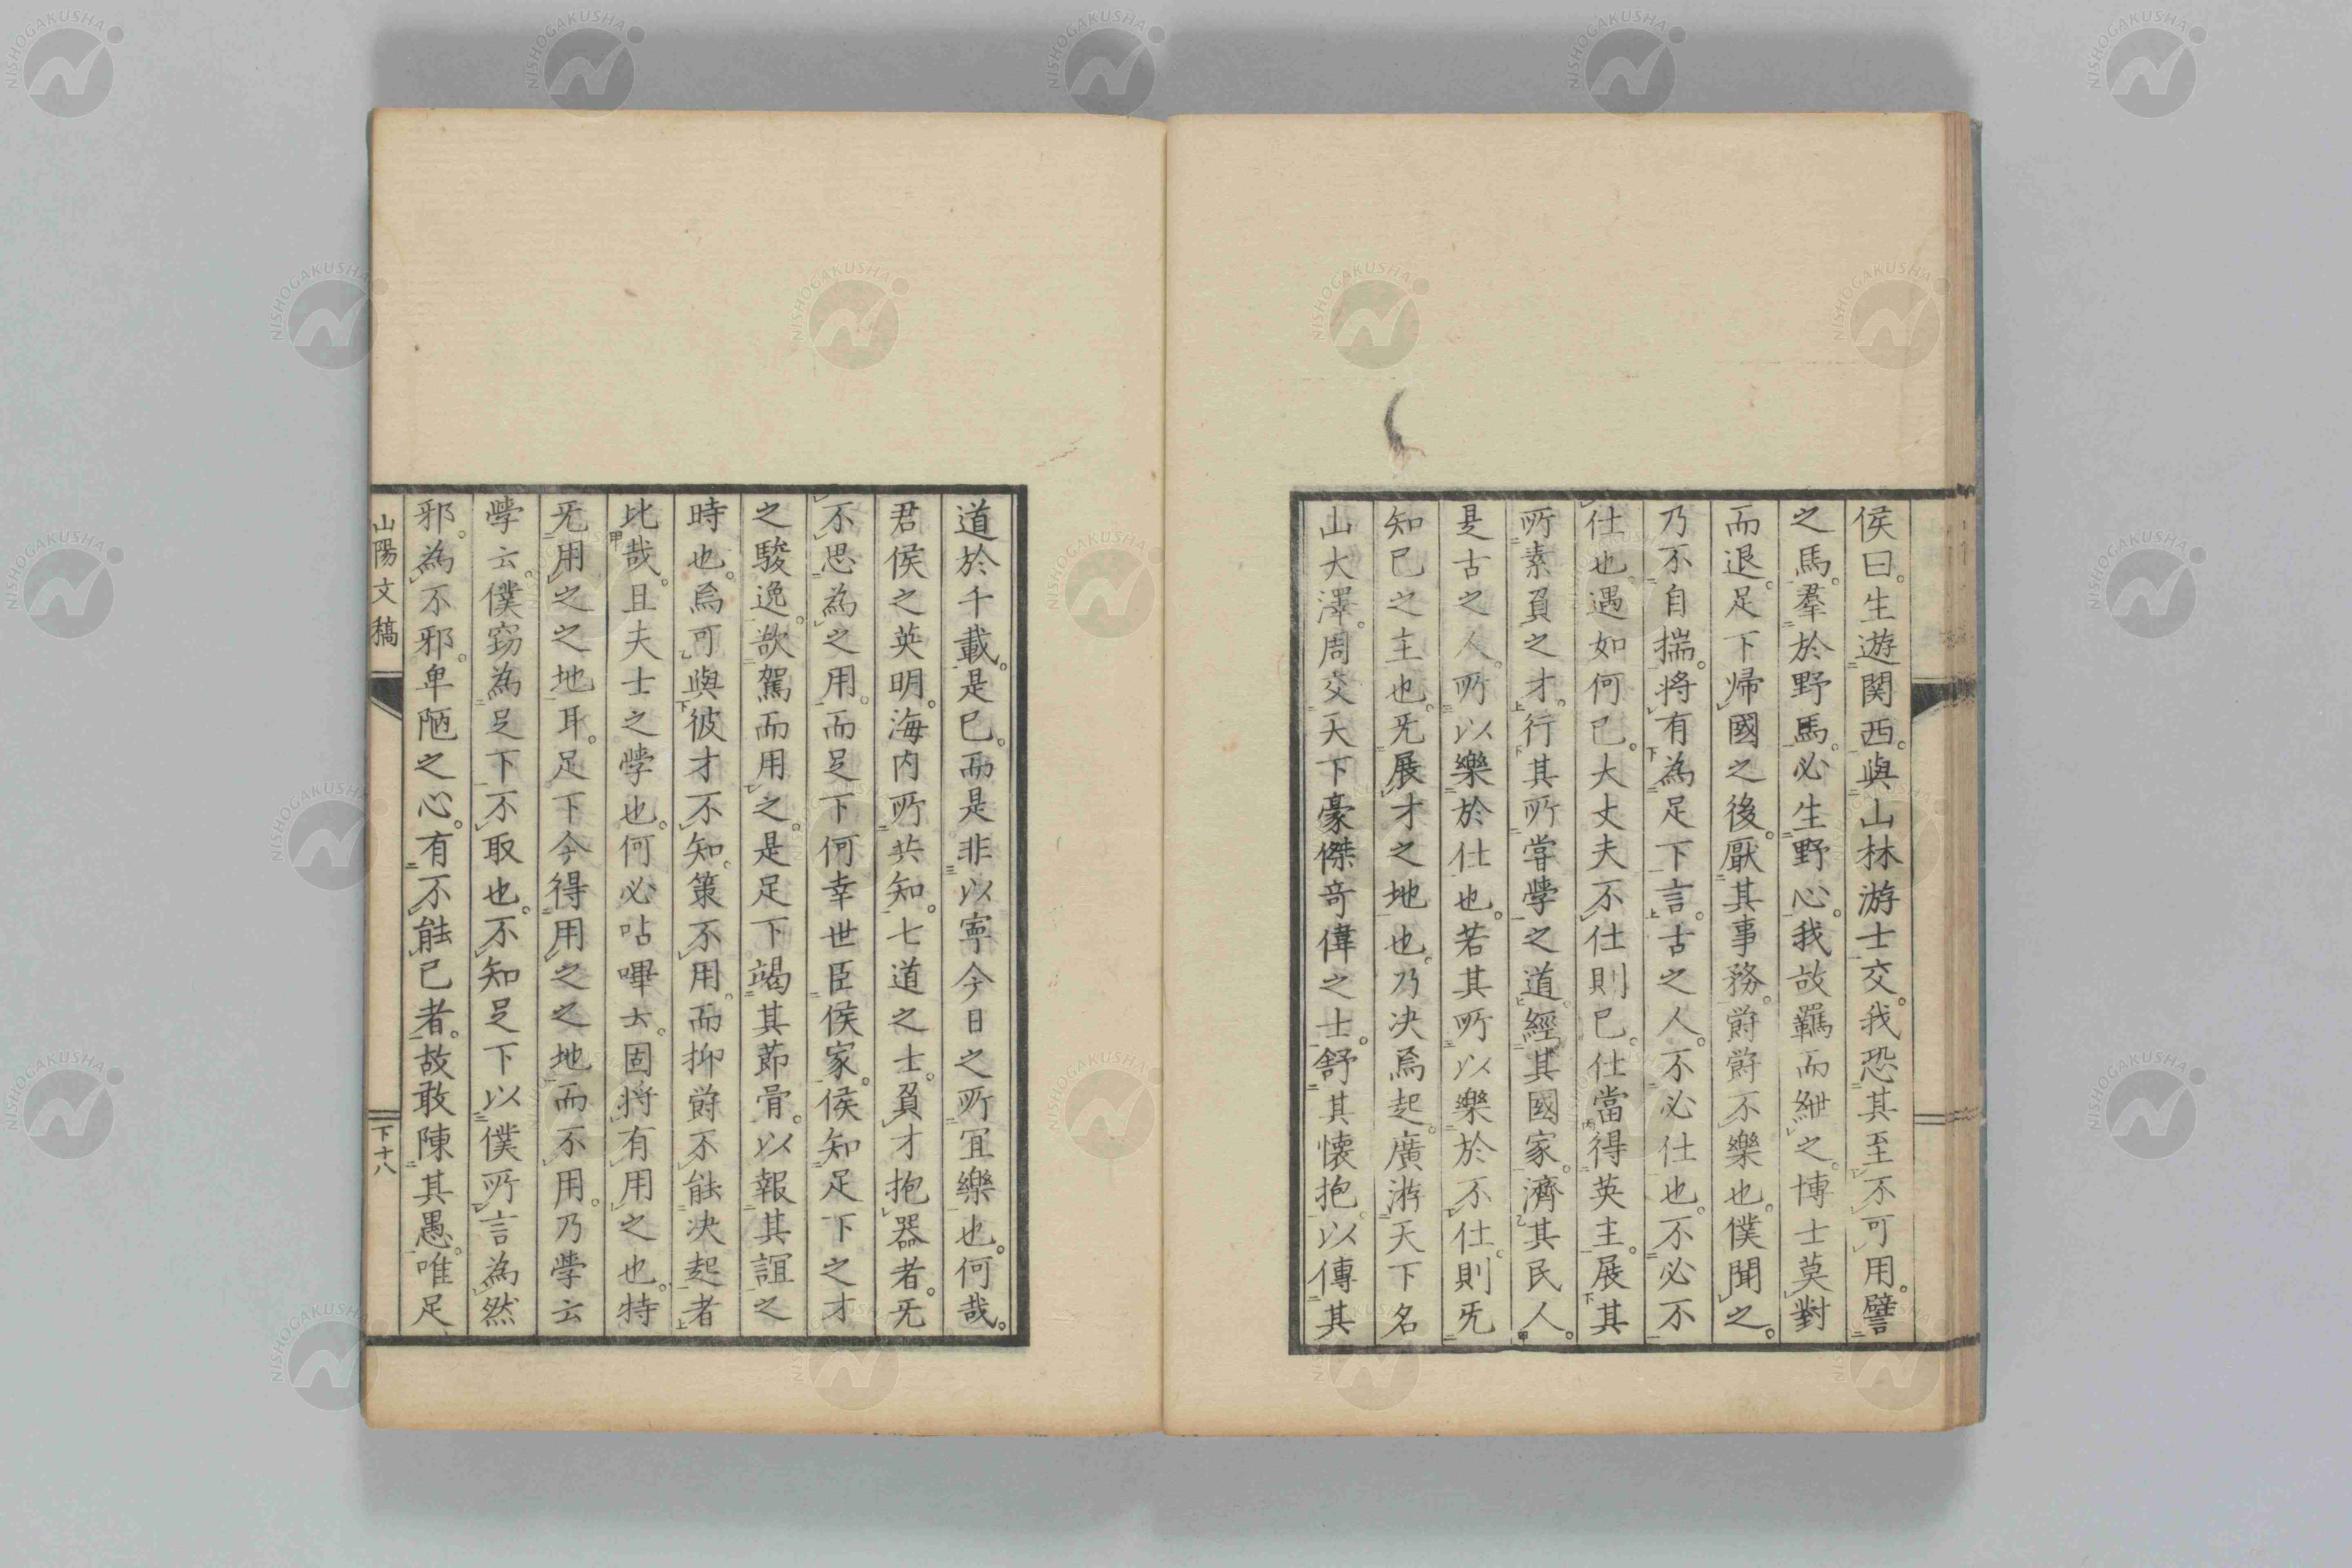 侯曰。生遊関西。與山林游士交。我恐其至不可用。譬
之馬。羣於野馬。必生野心。我故羈而紲之。博士莫對
而退。足下帰國之後。厭其事務。欝欝不樂也。僕聞之。
乃不自揣。将有為足下言。古之人。不必仕也。不必不
仕也。遇如何已。大丈夫不仕則已。仕當得英主。展其
所素負之才。行其所甞學之道。經其國家。濟其民人。
是古之人。所以樂於仕也。若其所以樂於不仕。則旡
知己之主也。旡展才之地也。乃决焉起。廣游天下名
山大澤。周交天下豪傑竒偉之士。舒其懷抱。以傳其
道於千載。是已。而是非以寧今日之所宜樂也。何哉。
君侯之英明。海内所共知。七道之士。負才抱器者。旡
不思為之用。而足下何幸世臣侯家。侯知足下之才
之駿逸。欲駕而用之。是足下竭其莭骨。以報其誼之
時也。焉可與彼才不知。策不用。而抑欝不能决起者
比哉。且夫士之學也。何必呫嗶去。固将有用之也。特
旡用之之地耳。足下今得用之之地。而不用。乃學云
學云。僕窃為足下不取也。不知足下以僕所言為然
邪。為不邪。卑陋之心。有不能已者。故敢陳其愚。唯足
山陽文稿
下十八
NISHOGAKUSHA